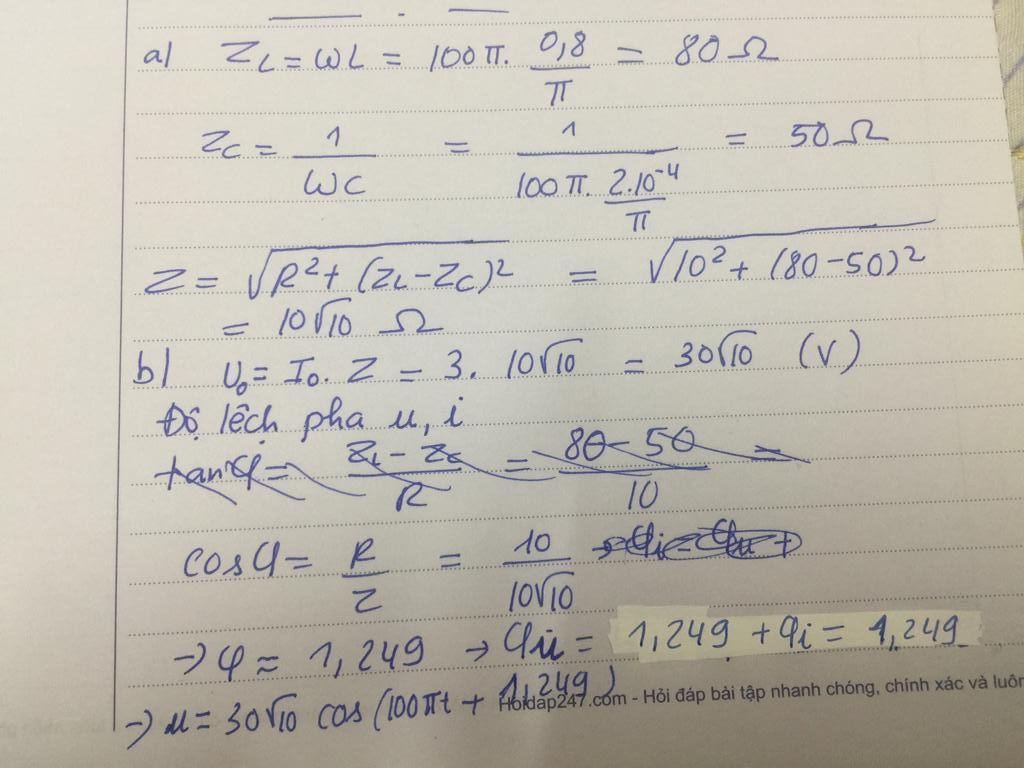 a) Z_L = ωL = 100π. 0,8/π = 80Ω
Z_C = 1/ωC = 1/(100π. 2.10^-4/π) = 50Ω
Z = √(R² + (Z_L - Z_C)²) = √(10² + (80 - 50)²)
= 10√10 Ω
b) U₀ = I₀. Z = 3. 10√10 = 30√10 (V)
Độ lệch pha u, i
tan φ = (Z_L - Z_C)/R = (80 - 50)/10 =
cos φ = R/Z = 10/10√10
→ φ ≈ 1,249 → φu = 1,249 + φi = 1,249
→ u = 30√10 cos(100πt + 1,249)
Hoidap247.com - Hỏi đáp bài tập nhanh chóng, chính xác và luôn